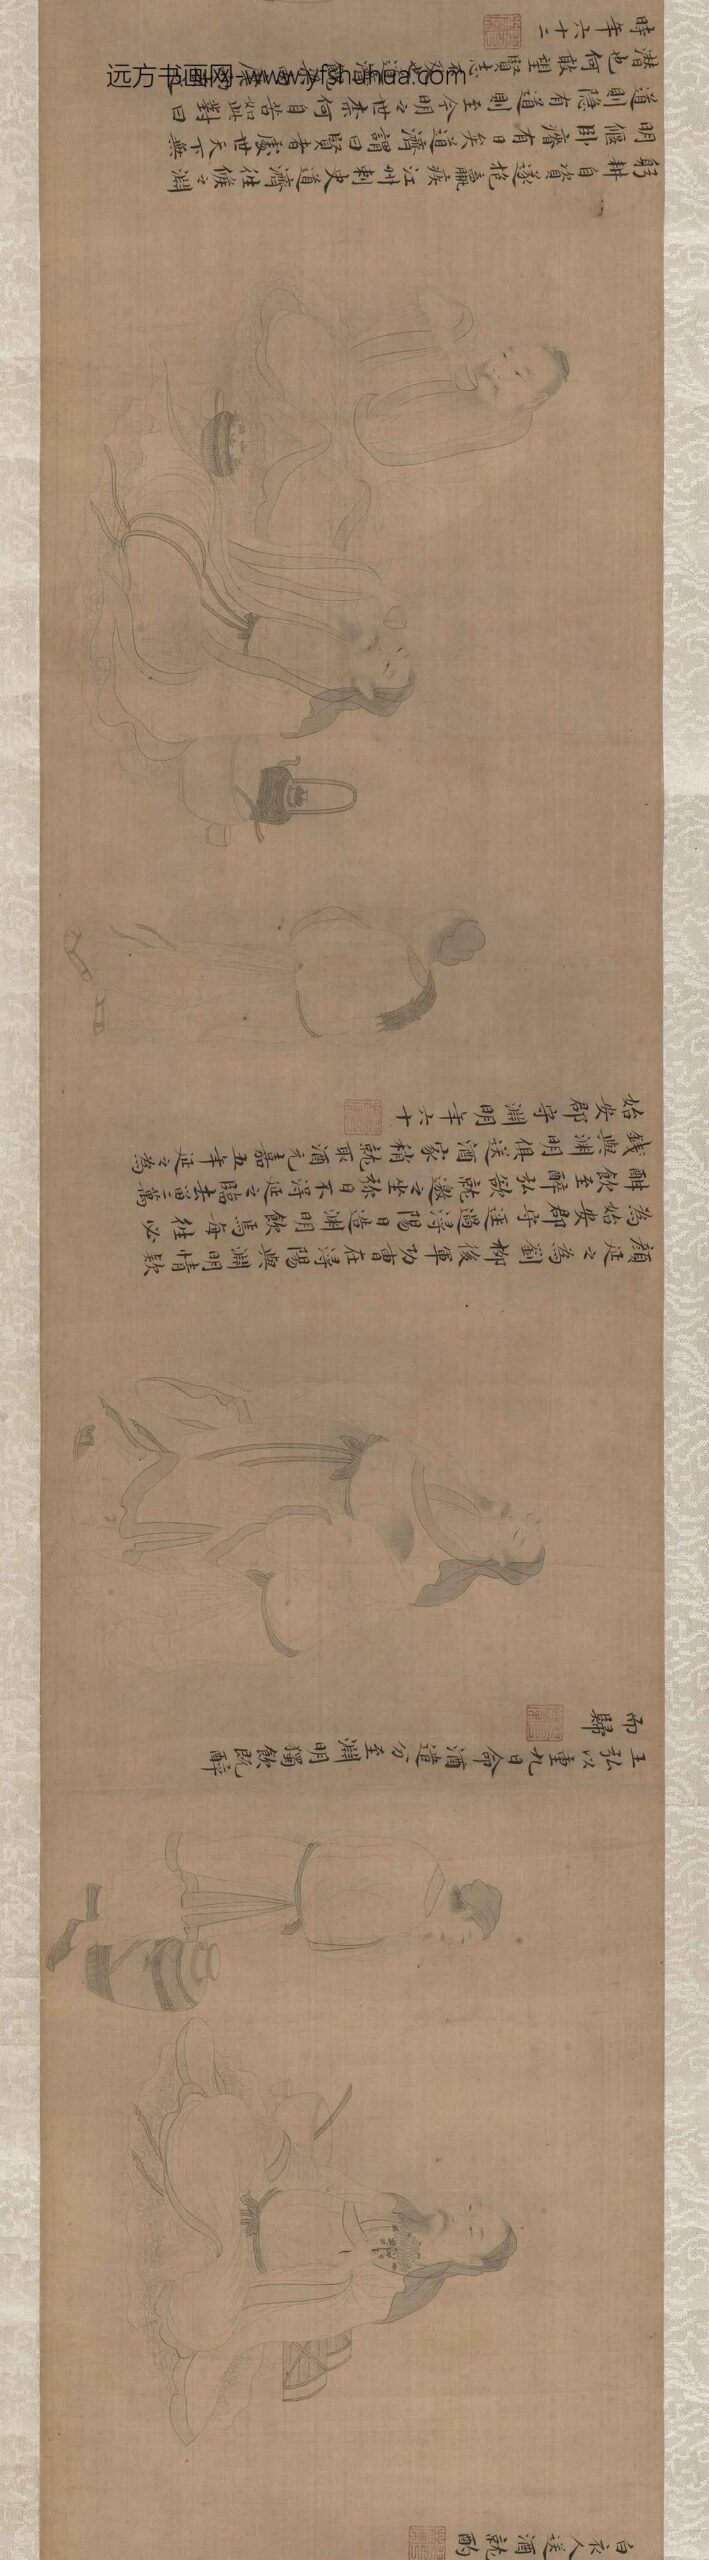 白衣人送酒就酌
王弘以重九日命酒遣分至淵明獨飲既醉
而歸
顏延之為劉柳後軍功曹在潯陽與淵明情款
為始安郡守逕過潯陽日造淵明飲焉每往必
酣飲至醉弘欲就邀之坐彌日不得延之臨去留二萬
錢與淵明俱送酒家稍就取酒元嘉五年延之為
始安郡守淵明年六十
躬耕自資遂抱羸疾江州刺史道濟往候之淵
明偃臥瘠有日矣道濟謂曰賢者處世天下無
道則隱有道則至今明之世柰何自苦如此對曰
潛也何敢望賢志不及也
時年六十二
远方书画网-www.yfshuhua.com